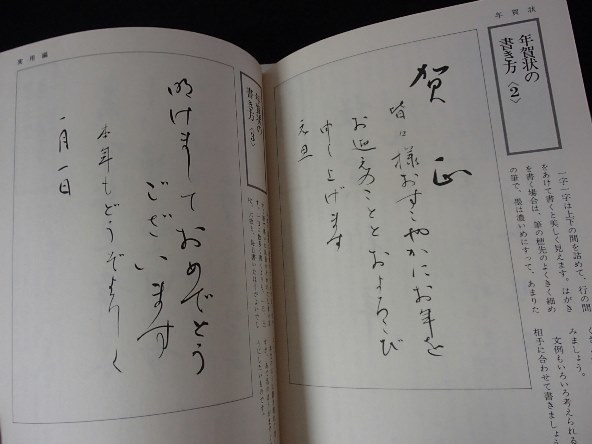 年賀状
年賀状の
書き方〈2〉
一字一字は上下の間を詰めて、行の間
をあけて書くと美しく見えます。はがき
を書く場合は、筆の穂先のよくきく細め
の筆で、墨は濃いめにすって、あまりた
みましょう。
文例もいろいろ考えられる
相手に合わせて書きましょ
賀正
皆々様おすこやかにお年を
お迎えのこととおよろこび
申し上げます
元旦
実用編
年賀状の
書き方〈3〉
明けましておめでとう
ございます
本年もどうぞよろしく
一月一日